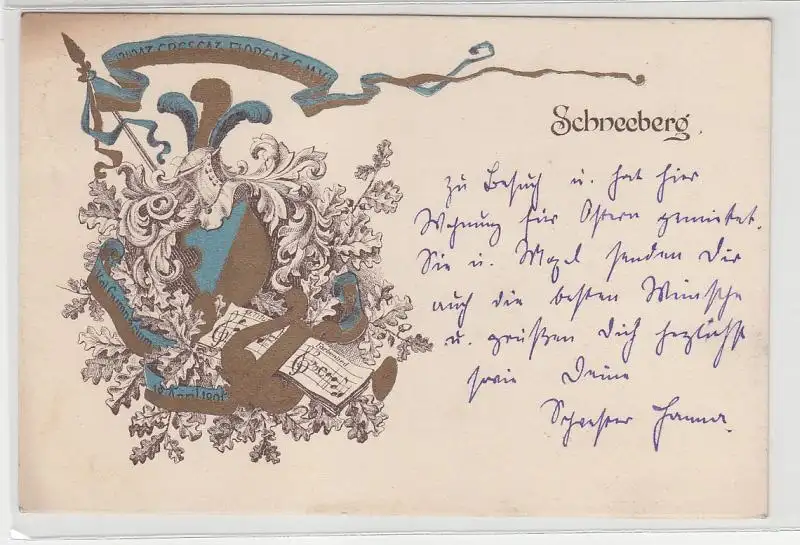 CRESCAT FLOREAT G.M.V.
Schneeberg.
zu Besuch u. hat hier
Wohnung für Ostern gemietet.
Sie u. senden Dir
auch die besten Wünsche
u. grüßen Dich herzlichst
sowie Deine
Schwester Hanna.
18 April